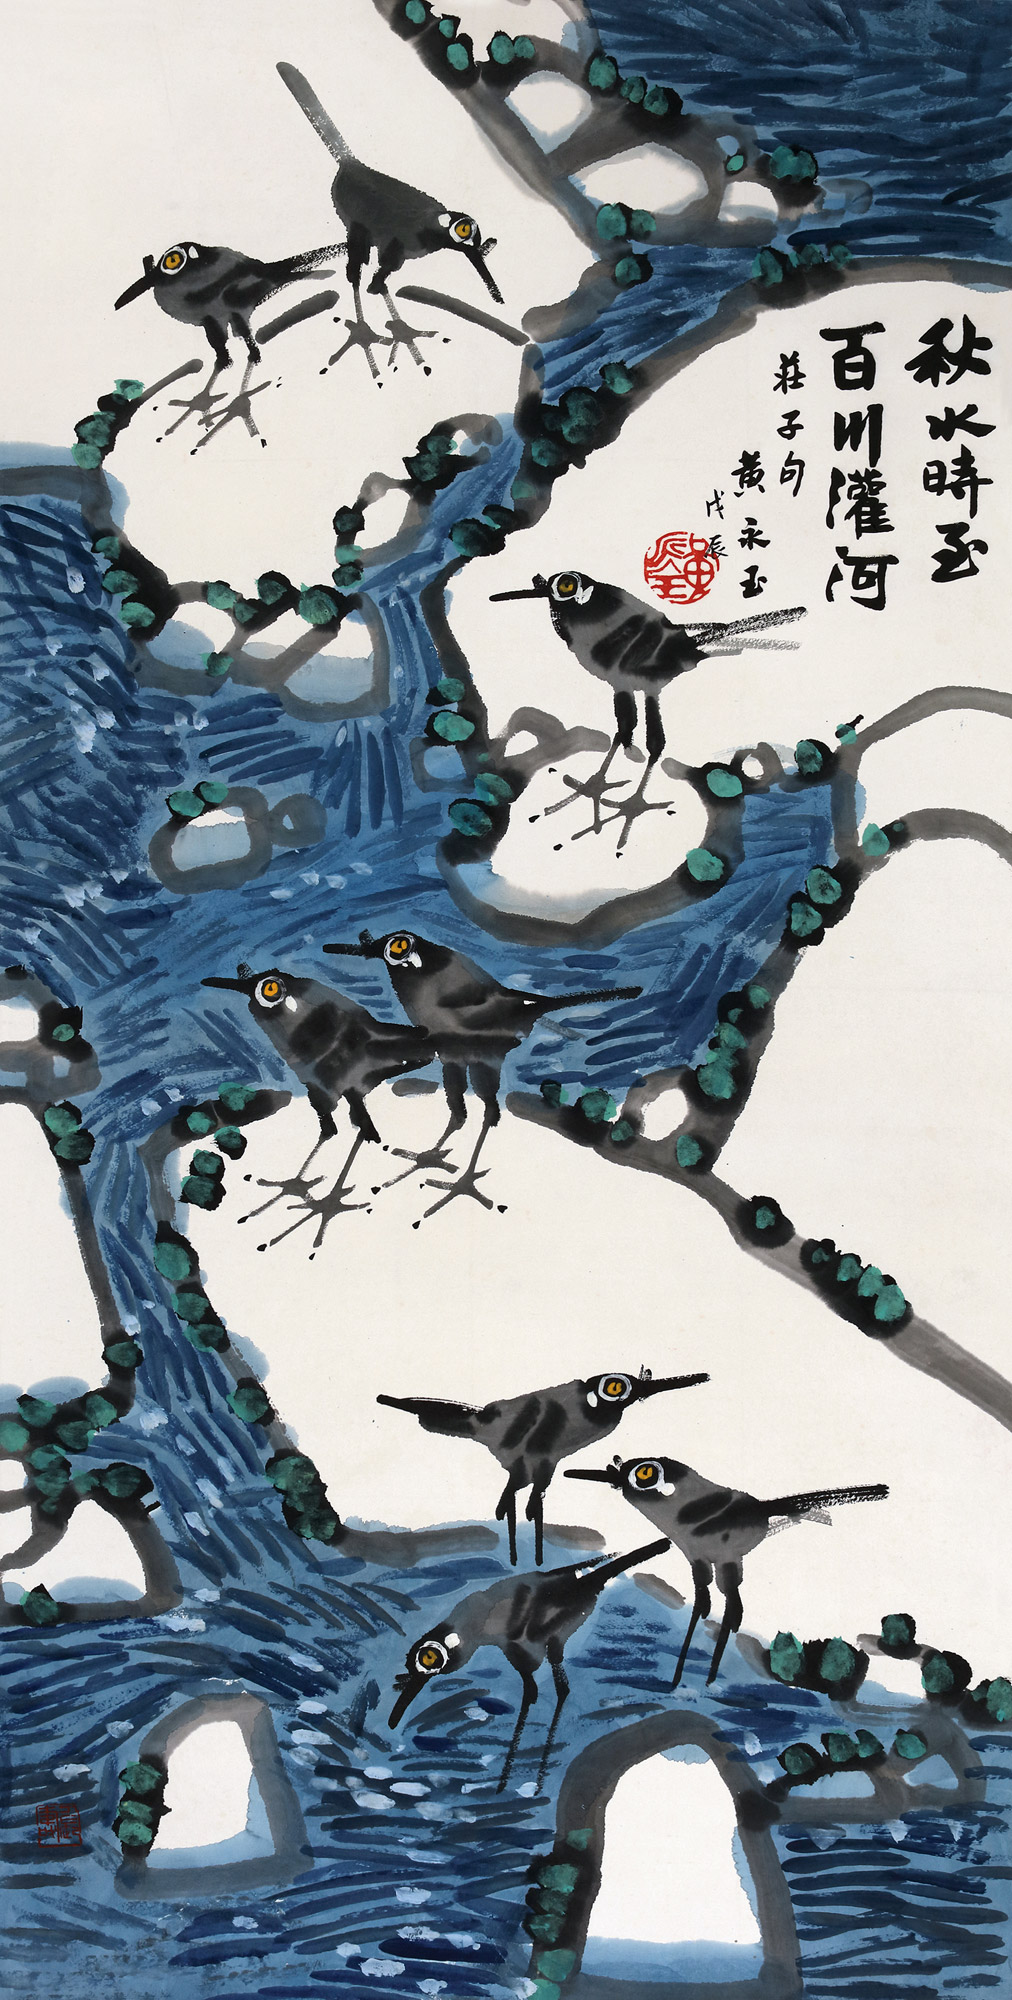 秋水時至
百川灌河
莊子句
黃永玉
戊辰